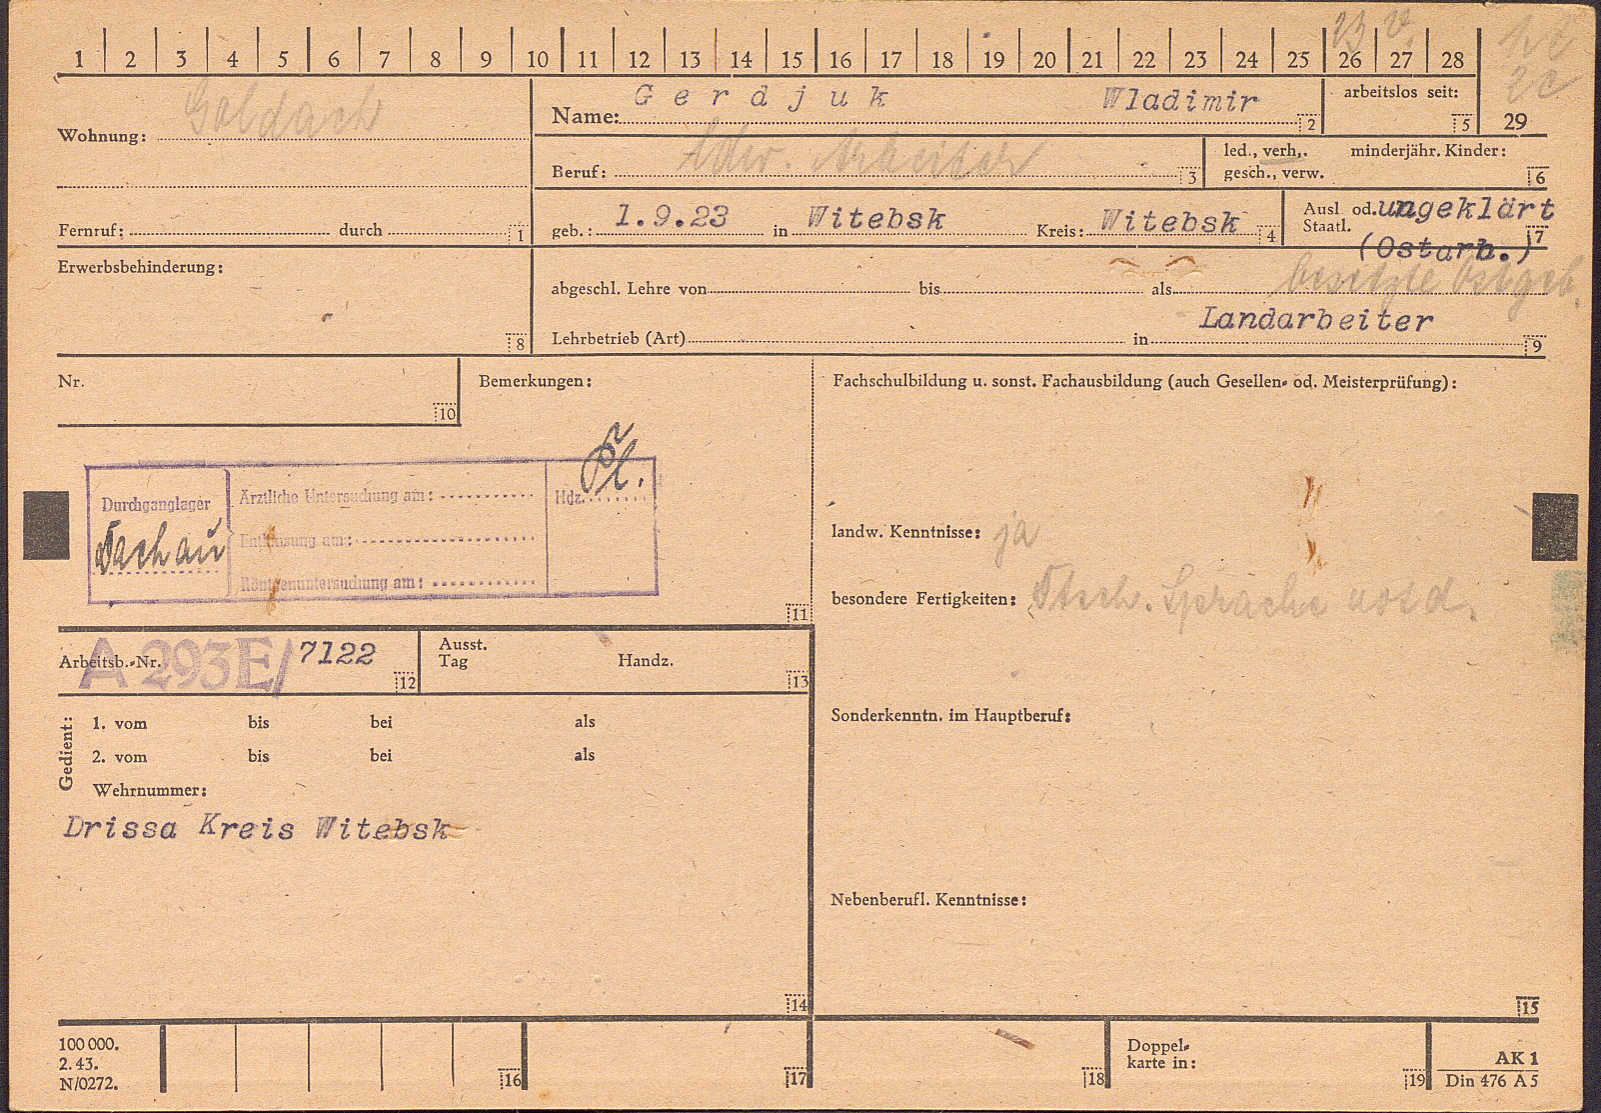 1 2 3 4 5 6 7 8 9 10 11 12 13 14 15 16 17 18 19 20 21 22 23 24 25 26 27 28
Wohnung: Goldach
Name: Gerdjuk Wladimir 2
arbeitslos seit: 5
29
Beruf: ldw. Arbeiter 3
led., verh., minderjähr. Kinder:
gesch., verw. 6
Fernruf: durch 1
geb.: 1.9.23 in Witebsk Kreis: Witebsk 4
Ausl. od. ungeklärt
Staatl. 7
(Ostarb.)
Erwerbsbehinderung: 8
besetzte Ostgeb.
abgeschl. Lehre von bis als
Landarbeiter
Lehrbetrieb (Art) in 9
Nr. 10
Bemerkungen:
Fachschulbildung u. sonst. Fachausbildung (auch Gesellen- od. Meisterprüfung):
Durchganglager
Dachau
Ärztliche Untersuchung am:
Entlausung am:
Röntgenuntersuchung am:
Hdz.
11
landw. Kenntnisse: ja
besondere Fertigkeiten: Dtsch. Sprache
Arbeitsb.-Nr. A 293E/7122 12
Ausst.
Tag Handz. 13
Sonderkenntn. im Hauptberuf:
Gedient:
1. vom bis bei als
2. vom bis bei als
Wehrnummer:
Drissa Kreis Witebsk
14
Nebenberufl. Kenntnisse:
15
100 000.
2. 43.
N/0272.
16
17
18
Doppel-
karte in: 19
AK 1
Din 476 A 5